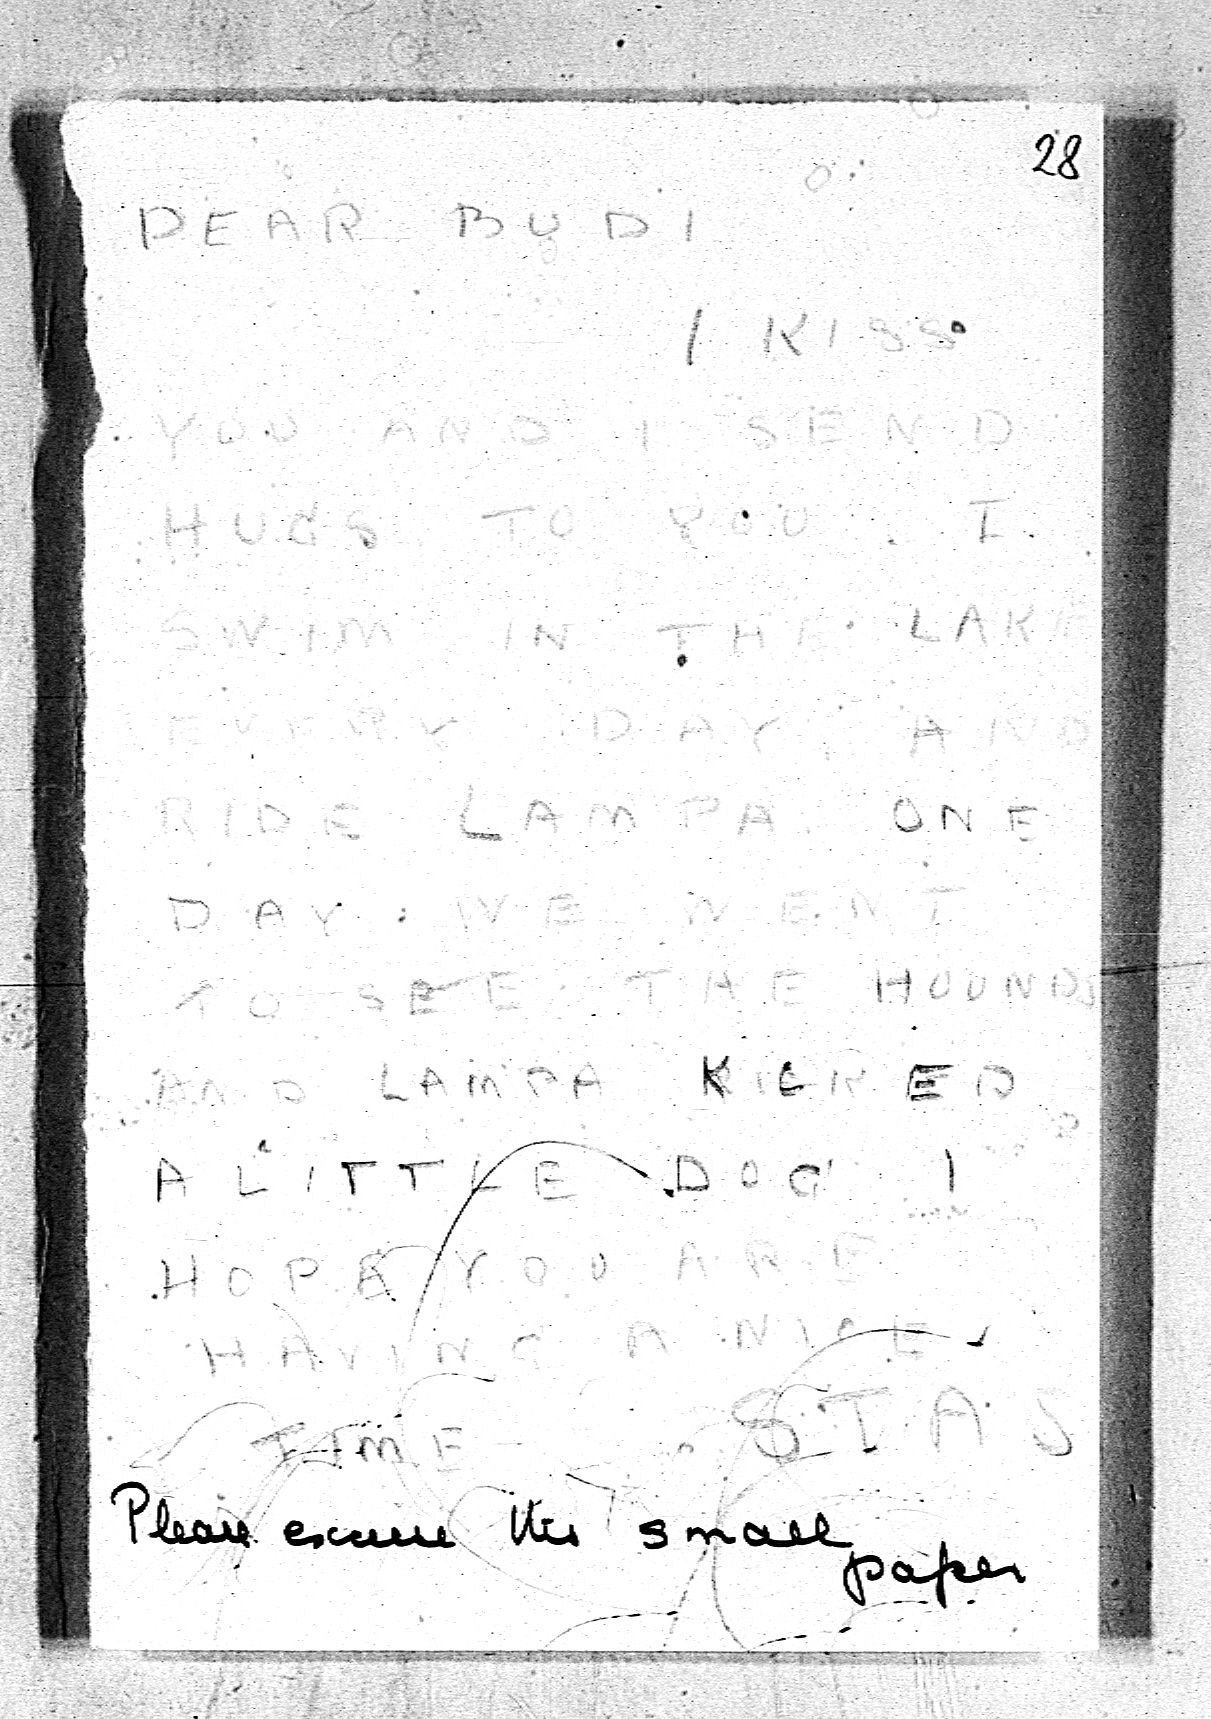 28
DEAR BUDI
I KISS
YOU AND I SEND
HUGS TO YOU. I
SWIM IN THE LAKE
EVERY DAY, AND
RIDE LAMPA. ONE
DAY WE WENT
TO SEE THE HOUNDS
AND LAMPA KICKED
A LITTLE DOG I
HOPE YOU ARE
HAVING A NICE
TIME STAS
Please excuse this small
paper